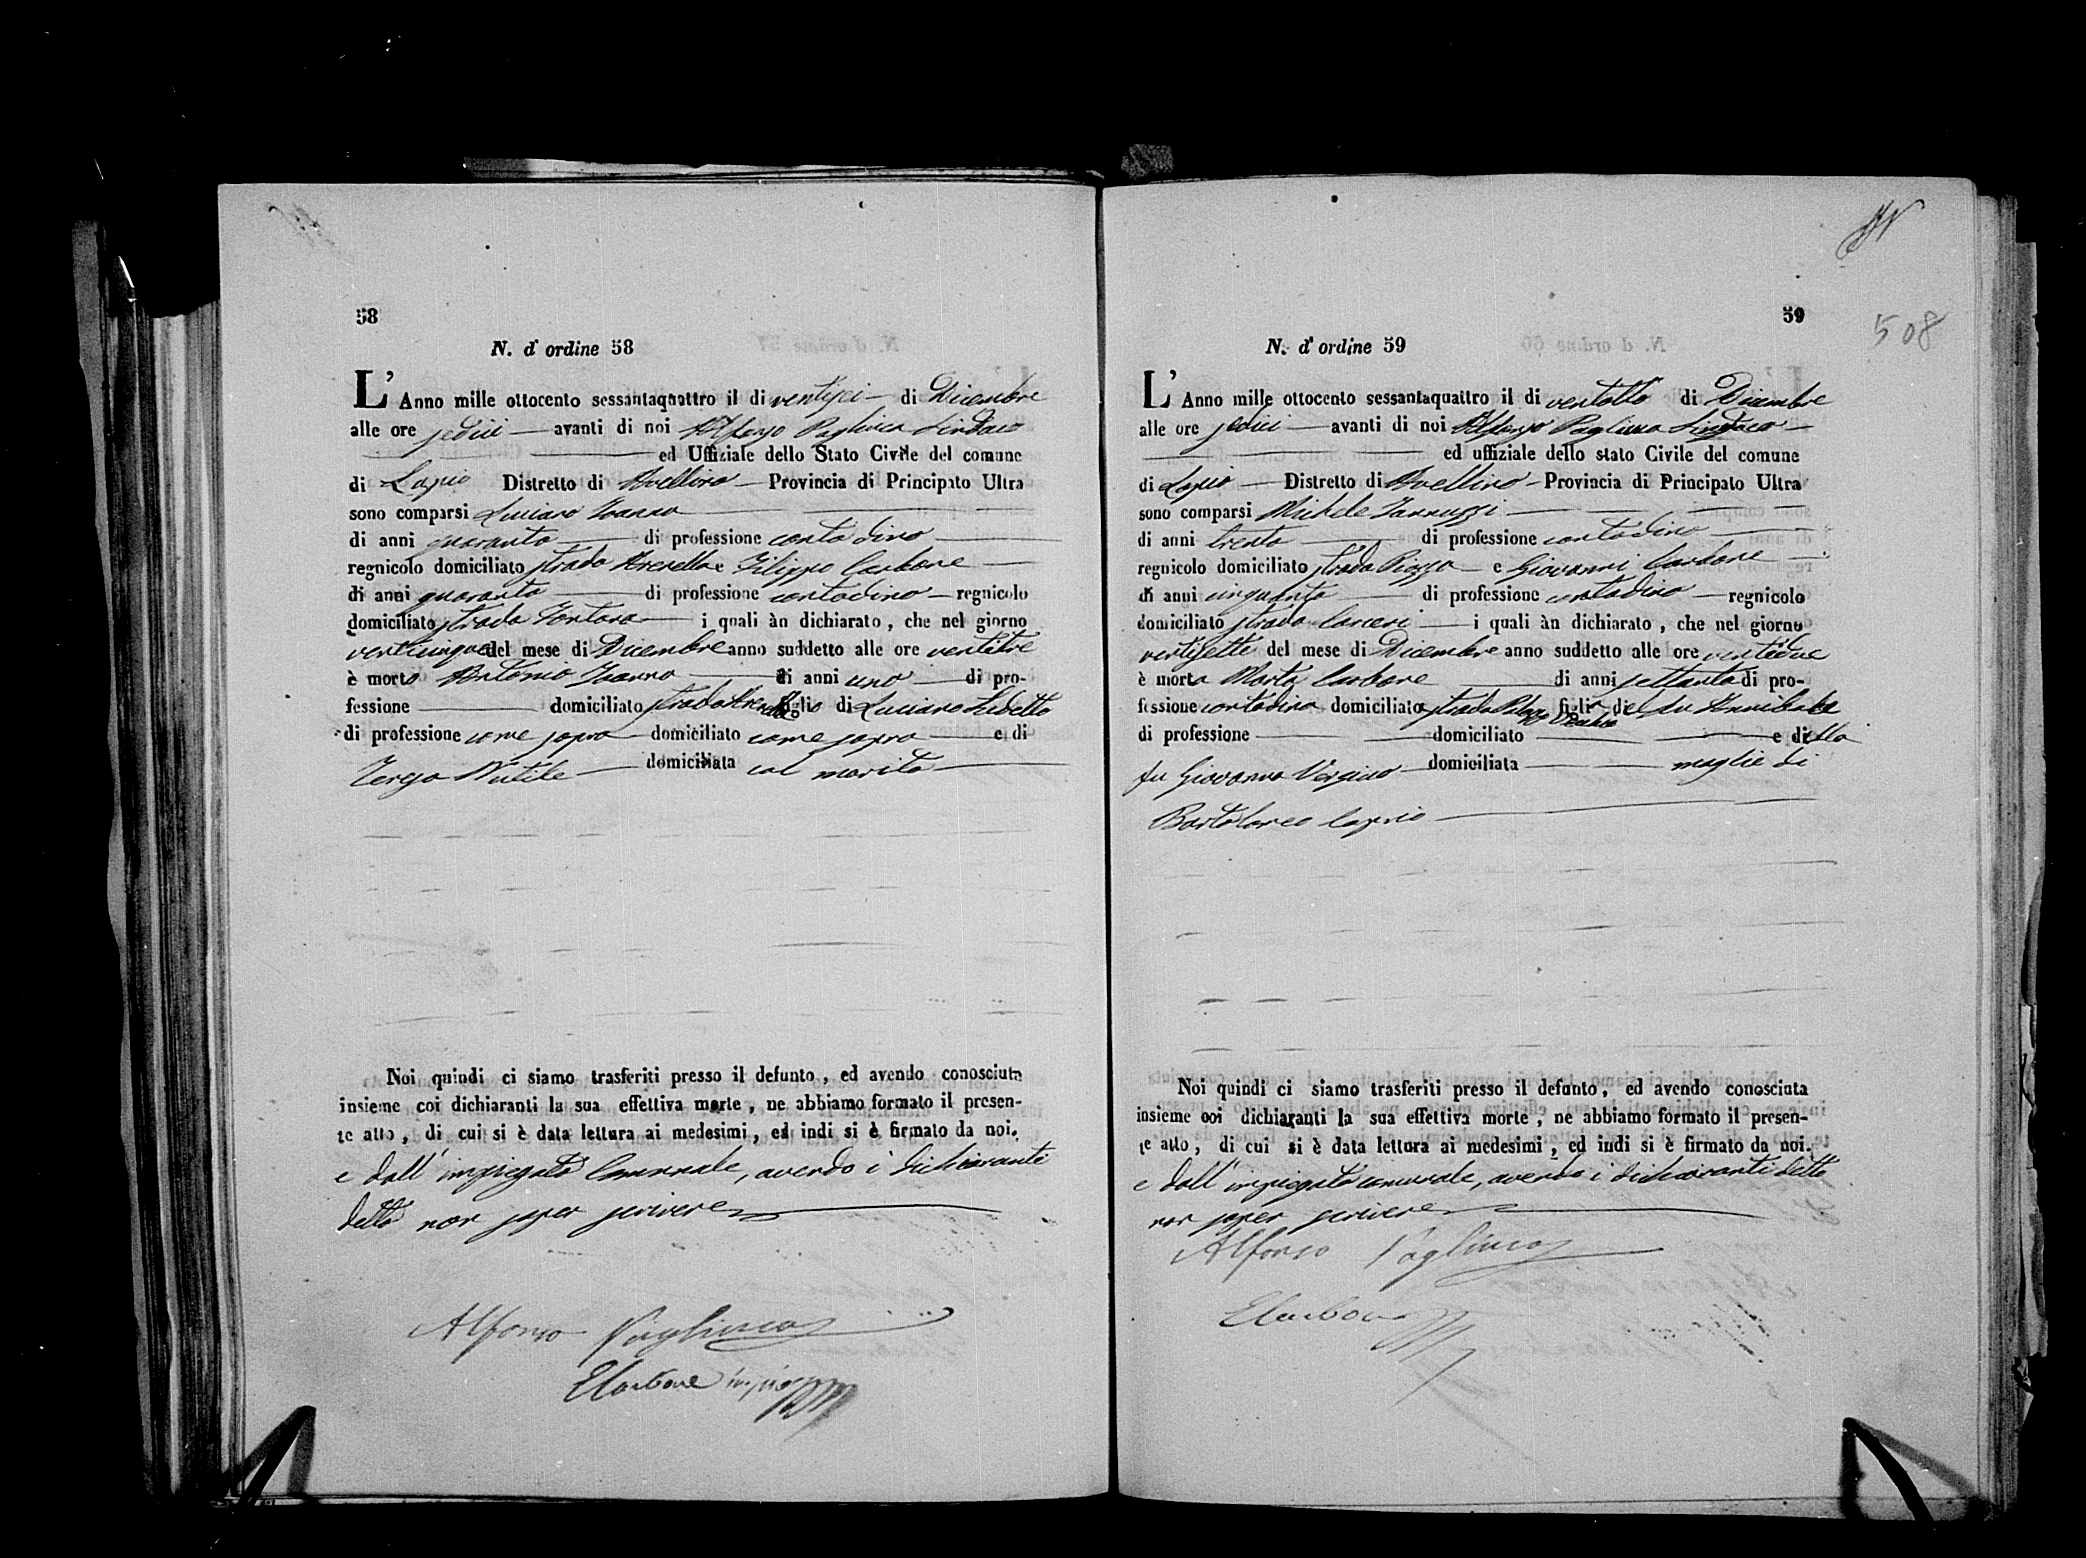 58
N. d' ordine 58
L' Anno mille ottocento sessantaquattro il di ventisei di Dicembre
alle ore sedici avanti di noi Alfonso Pagliuca Sindaco
ed Uffiziale dello Stato Civile del comune
di Lapio Distretto di Avellino Provincia di Principato Ultra
sono comparsi Luciano
di anni quaranta di professione contadino
regnicolo domiciliato strada Arenella e Filippo Carbone
di anni quaranta di professione contadino regnicolo
domiciliato strada i quali àn dichiarato, che nel giorno
venticinque del mese di Dicembre anno suddetto alle ore ventitre
è morto Antonio di anni uno di pro-
fessione domiciliato strada Arenella figlio di Luciano sudetto
di professione come sopra domiciliato come sopra e di
domiciliata col marito
Noi quindi ci siamo trasferiti presso il defunto, ed avendo conosciuta
insieme coi dichiaranti la sua effettiva morte, ne abbiamo formato il presen-
te atto, di cui si è data lettura ai medesimi, ed indi si è firmato da noi.
e dall' impiegato Comunale, avendo i dichiaranti
detto non saper scrivere
Alfonso Pagliuca
ECarbone
59
508
N. d' ordine 59
L' Anno mille ottocento sessantaquattro il di ventotto di Dicembre
alle ore sedici avanti di noi Alfonso Pagliuca Sindaco
ed uffiziale dello stato Civile del comune
di Lapio Distretto di Avellino Provincia di Principato Ultra
sono comparsi Michele Iannuzzi
di anni trenta di professione contadino
regnicolo domiciliato strada Piazza e Giovanni Carbone
di anni cinquanta di professione contadino regnicolo
domiciliato strada Carceri i quali àn dichiarato, che nel giorno
ventisette del mese di Dicembre anno suddetto alle ore ventidue
è morta Marta Carbone di anni settanta di pro-
fessione contadina domiciliata strada Palazzo Vecchio figlia del fu Annibale
di professione domiciliato e della
fu Giovanna domiciliata moglie di
Bartolomeo Caprio
Noi quindi ci siamo trasferiti presso il defunto, ed avendo conosciuta
insieme coi dichiaranti la sua effettiva morte, ne abbiamo formato il presen-
te atto, di cui si è data lettura ai medesimi, ed indi si è firmato da noi.
e dall' impiegato comunale, avendo i dichiaranti detto
non saper scrivere
Alfonso Pagliuca
ECarbone